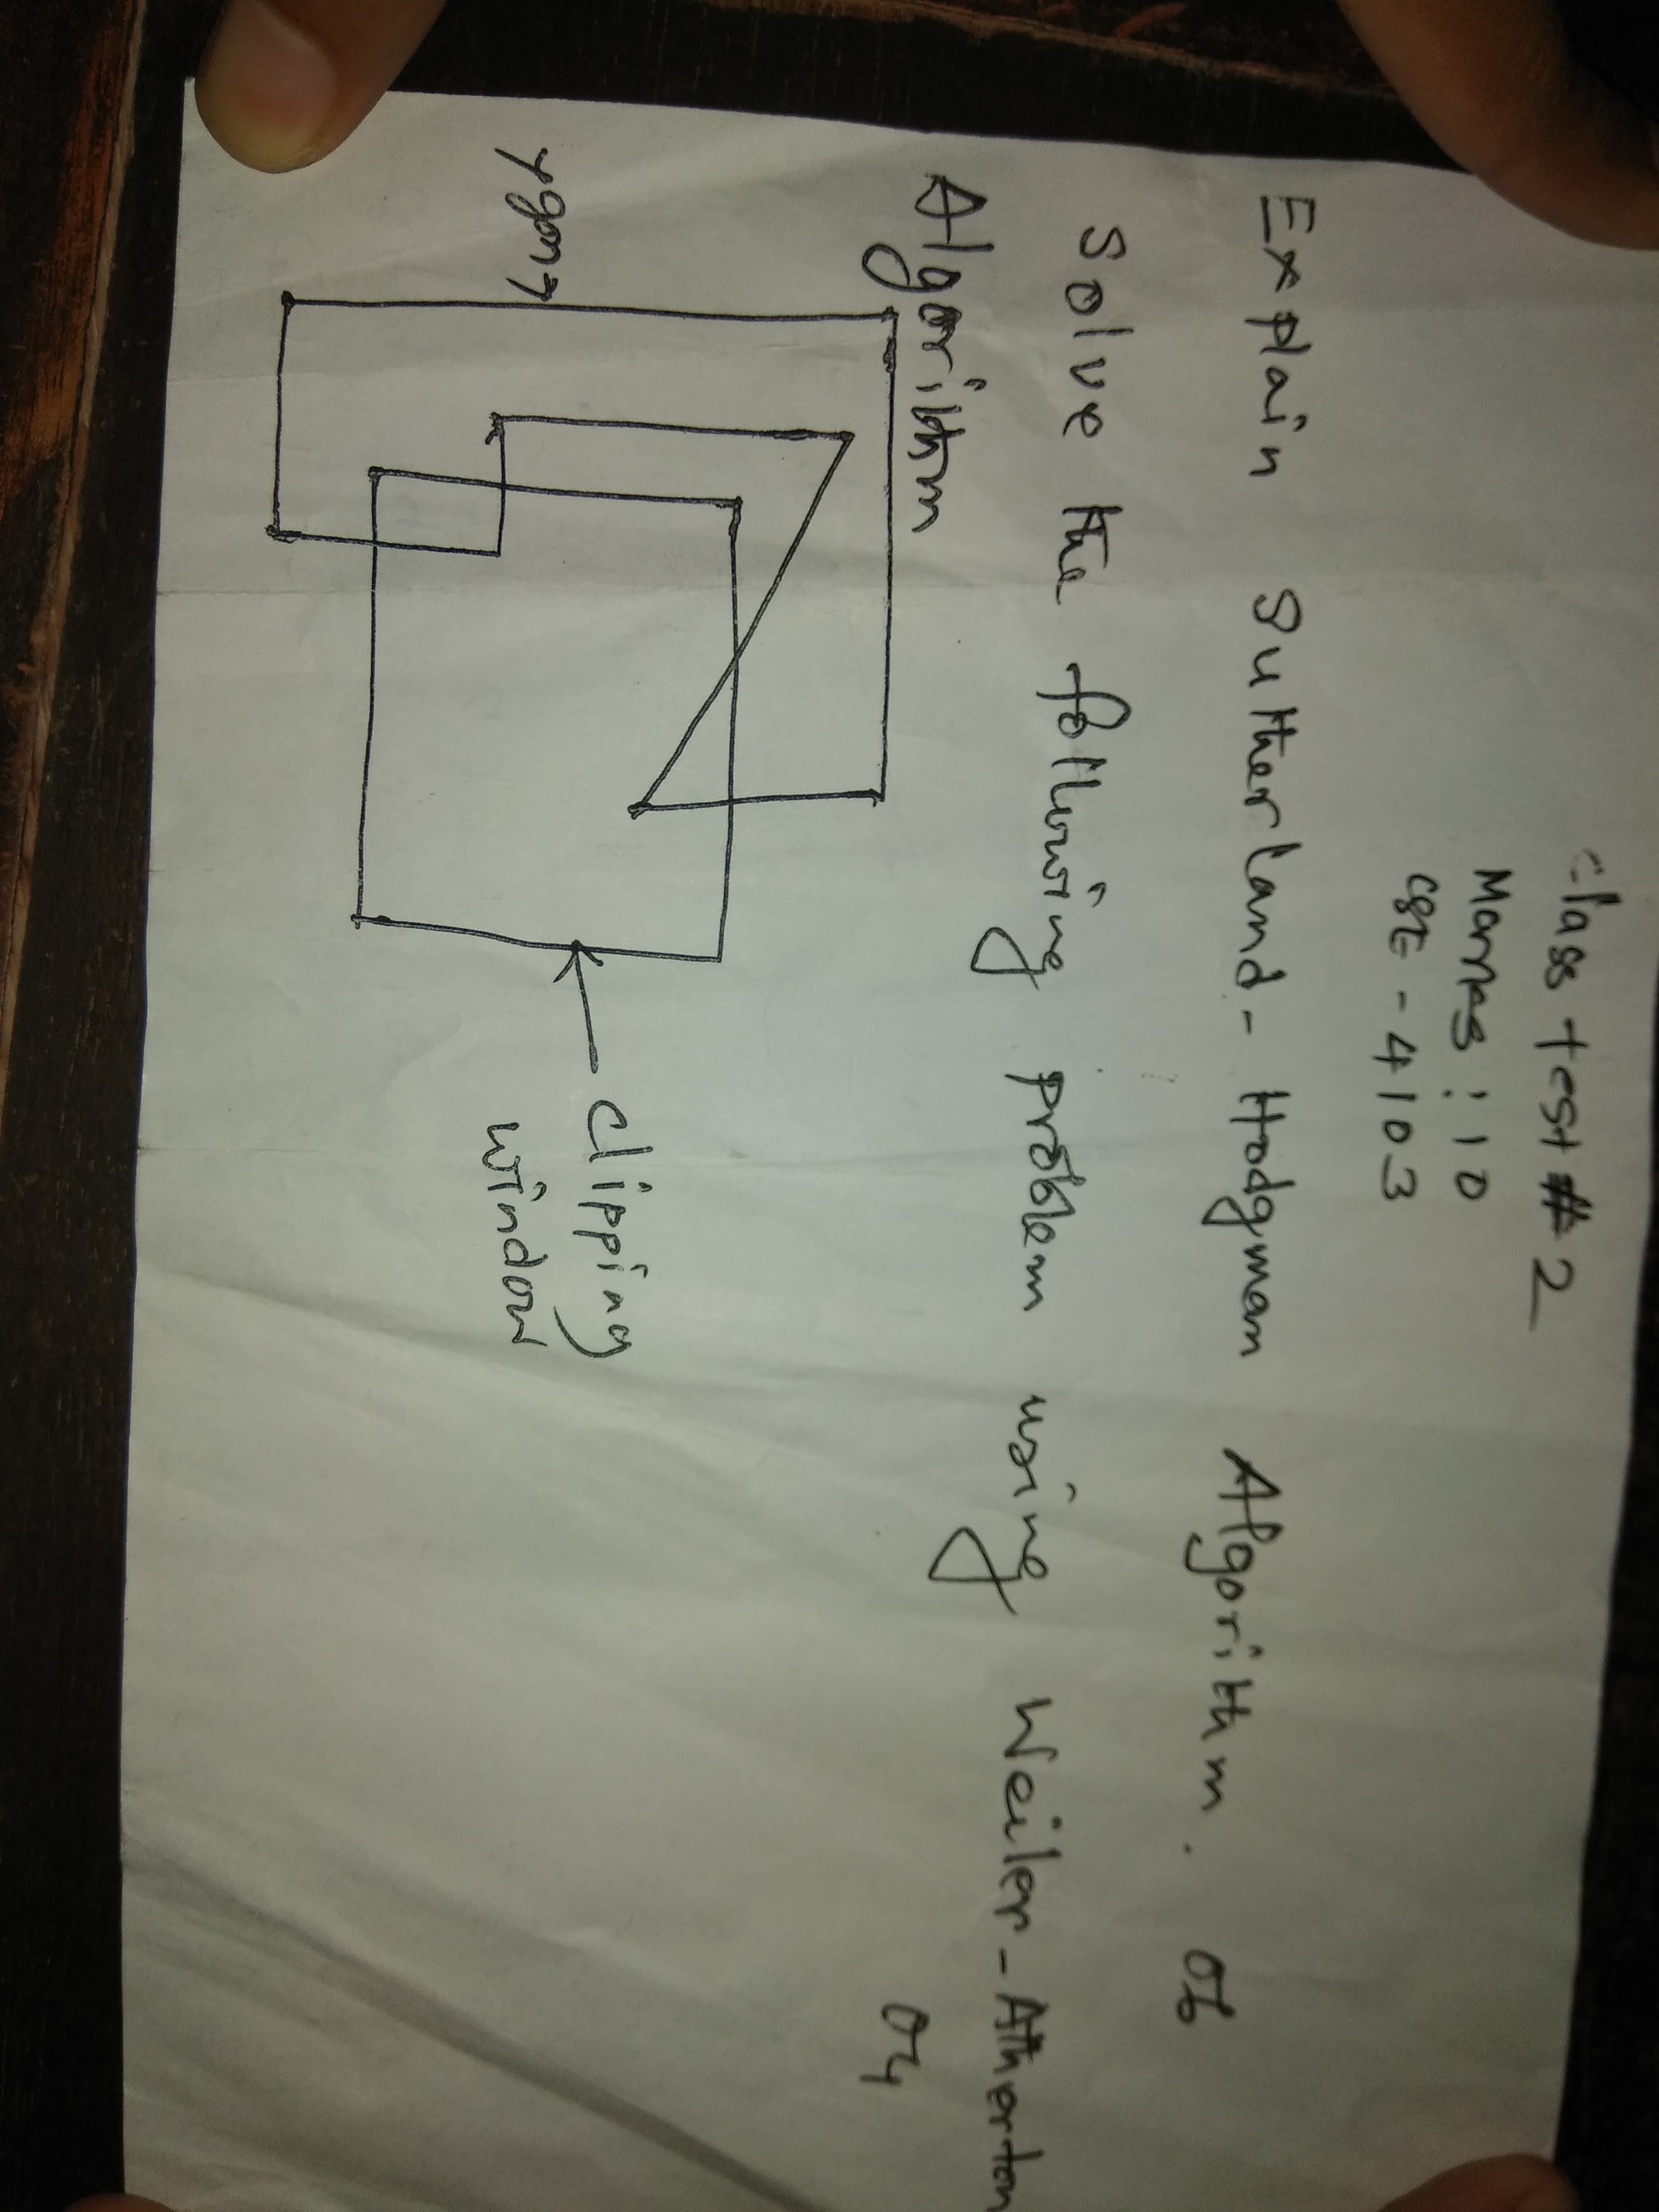 Class Test # 2
Marks : 10
CSE - 4103
Explain Sutherland - Hodgman Algorithm. 06
Solve the following problem using Weiler - Atherton
Algorithm 04
ygon
clipping
window